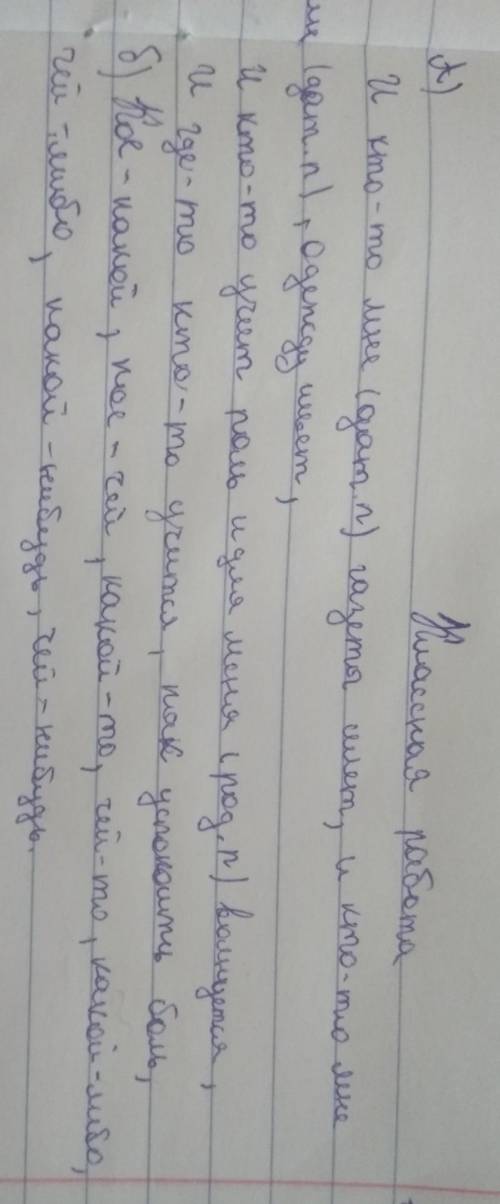 Классная работа
А)
И кто-то мне (дат.п) газеты шлет, и кто-то мне
(дат.п), одежду шьет,
И кто-то учит роль и для меня (род.п) волнуется,
И где-то кто-то учится, как успокоить боль,
б) Кое-какой, кое-чей, какой-то, чей-то, какой-либо,
чей-либо, какой-нибудь, чей-нибудь.